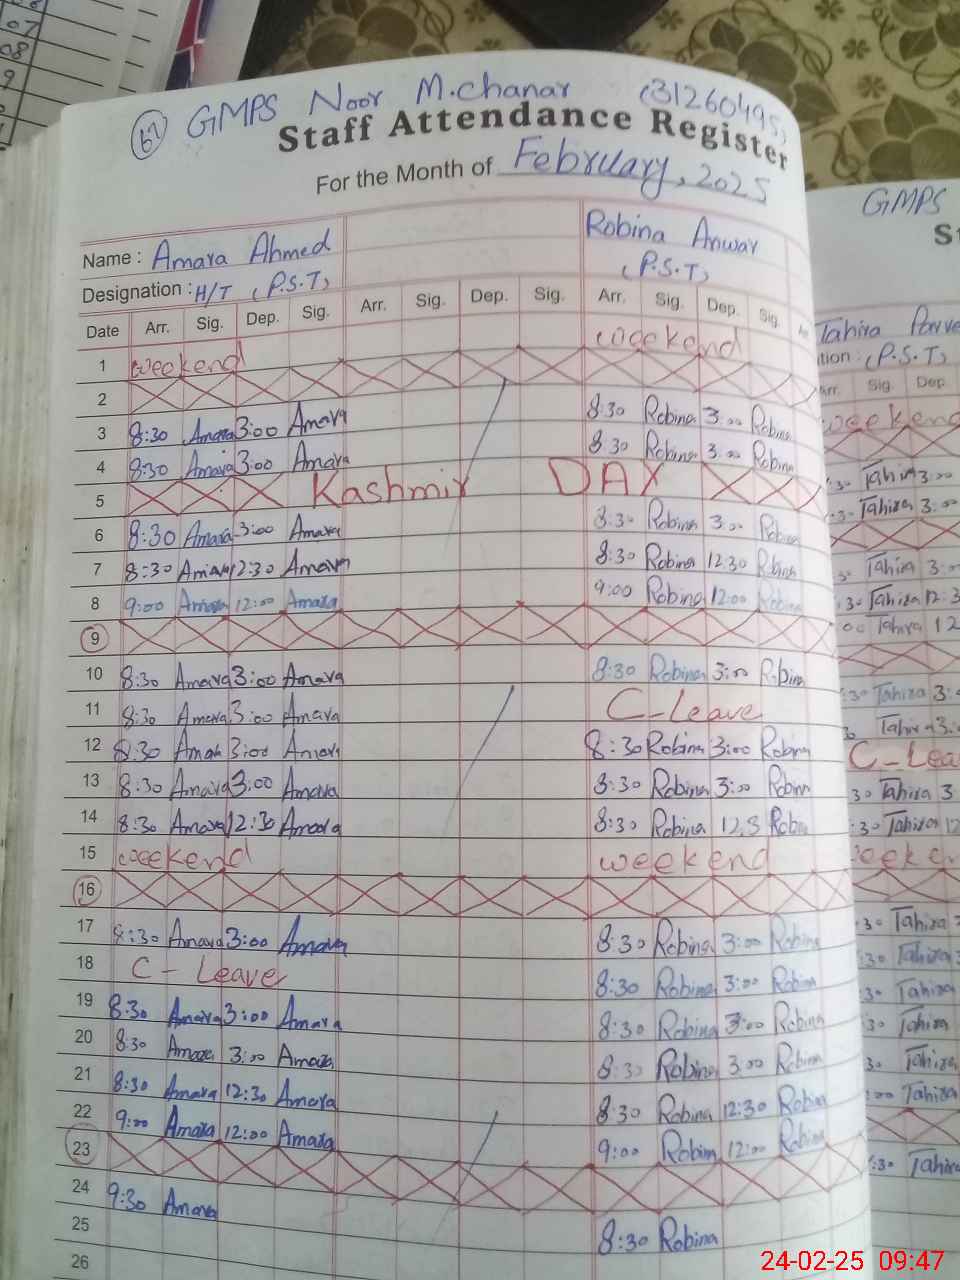 67 GMPS Noor M.chanar (31260495)
Staff Attendance Register
For the Month of February, 2025
Name : Amara Ahmed Robina Anwar
Designation : H/T (P.S.T) (P.S.T)
Date Arr. Sig. Dep. Sig. Arr. Sig. Dep. Sig. Arr. Sig. Dep. Sig.
1 weekend weekend
2
3 8:30 Amara 3:00 Amara 8:30 Robina 3:00 Robina
4 8:30 Amara 3:00 Amara 8:30 Robina 3:00 Robina
5 Kashmir DAY
6 8:30 Amara 3:00 Amara 8:30 Robina 3:00 Robina
7 8:30 Amara 12:30 Amara 8:30 Robina 12:30 Robina
8 9:00 Amara 12:00 Amara 9:00 Robina 12:00 Robina
9
10 8:30 Amara 3:00 Amara 8:30 Robina 3:00 Robina
11 8:30 Amara 3:00 Amara C-Leave
12 8:30 Amara 3:00 Amara 8:30 Robina 3:00 Robina
13 8:30 Amara 3:00 Amara 8:30 Robina 3:00 Robina
14 8:30 Amara 12:30 Amara 8:30 Robina 12.3 Robin
15 weekend weekend
16
17 8:30 Amara 3:00 Amara 8:30 Robina 3:00 Robina
18 C-Leave 8:30 Robina 3:00 Robina
19 8:30 Amara 3:00 Amara 8:30 Robina 3:00 Robina
20 8:30 Amara 3:00 Amara 8:30 Robina 3:00 Robina
21 8:30 Amara 12:30 Amara 8:30 Robina 12:30 Robina
22 9:00 Amara 12:00 Amara 9:00 Robina 12:00 Robina
23
24 9:30 Amara 8:30 Robina
25
26
GMPS
Tahira
(P.S.T)
Arr. Sig. Dep.
weekend
Tahira 3:00
Tahira 3:00
Tahira
Tahira
Tahira
Tahira
Tahira
C-Lea
Tahira
Tahira
Tahira
Tahira
Tahira
Tahira
Tahira
Tahira
Tahira
24-02-25 09:47